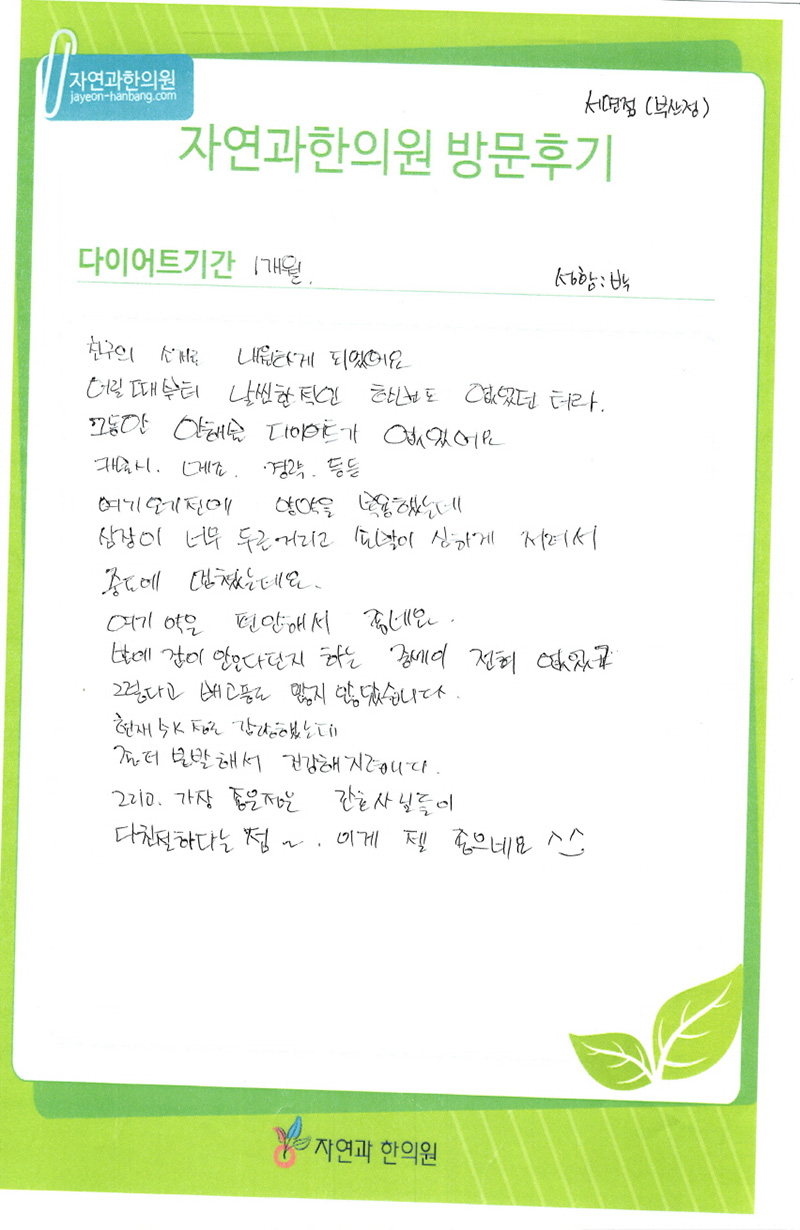 자연과한의원
jayeon-hanbang.com
서면점 (부산점)
자연과한의원 방문후기
다이어트기간 1개월.
성함: 박
친구의 소개로 내원하게 되었어요
어릴때부터 날씬한적인 한번도 없었던 터라.
그동안 안해본 다이어트가 없었어요
메조. 경락. 등등
여기오기전에 양약을 복용했는데
심장이 너무 두근거리고 손발이 심하게 저려서
중도에 멈췄는데요.
여기 약은 편안해서 좋네요.
밤에 잠이 안온다던지 하는 증세의 전혀 없었구
그렇다고 배고픔도 많지 않았습니다.
현재 4K 정도 감량했는데
좀더 분발해서 건강해지렵니다.
그리고. 가장 좋은점은 간호사님들이
다친절하다는 점~. 이게 젤 좋으네요 ^^
자연과 한의원